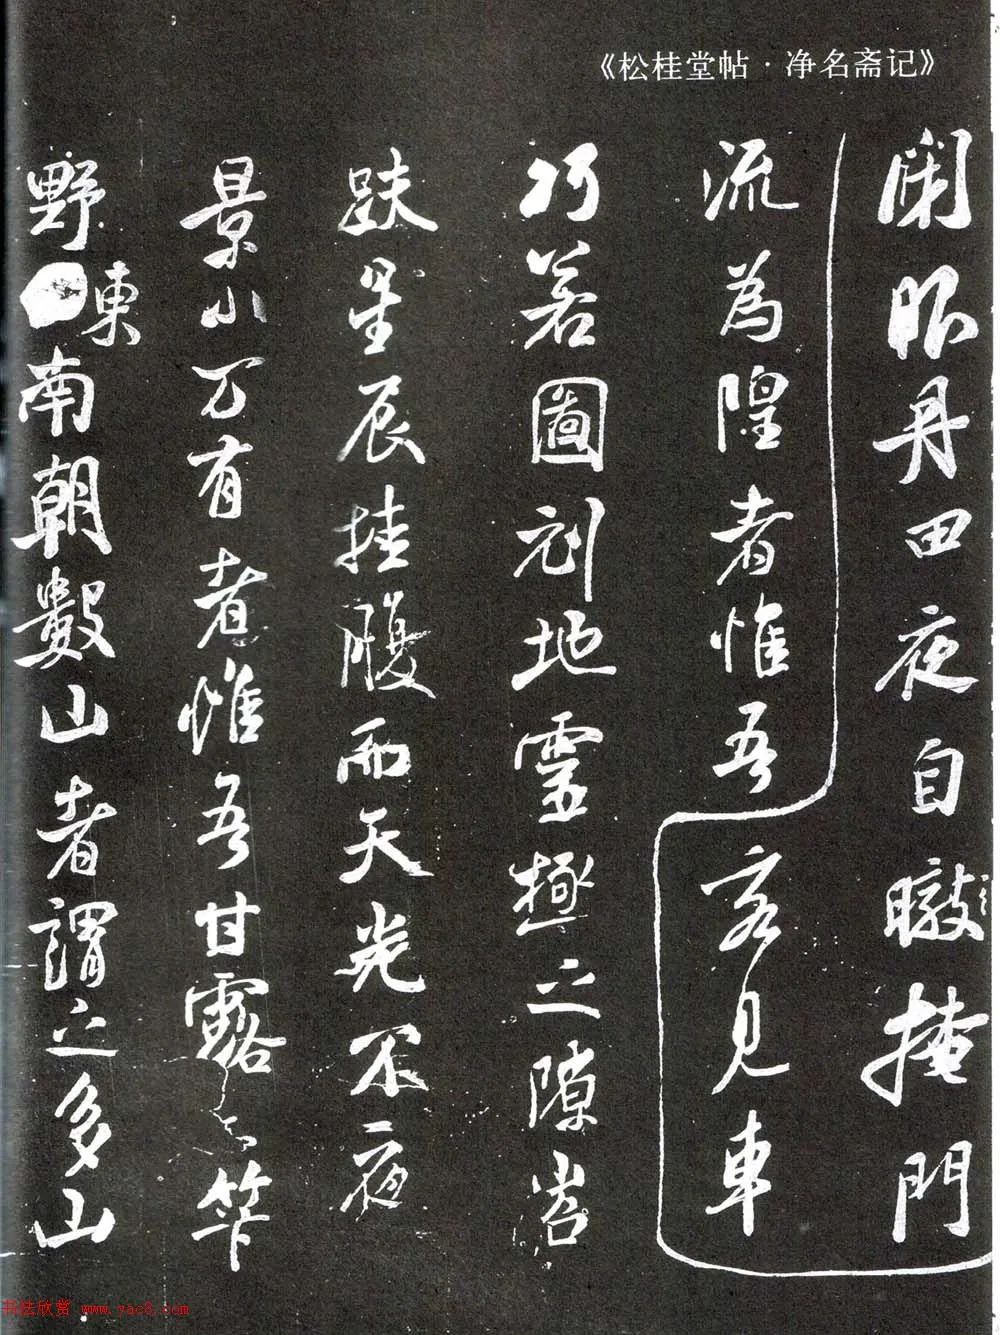 《松桂堂帖·净名斋记》
閑昄丹田夜白瞰掩門
流為隍者惟吾客見車
巧若圖刻地靈極之隙岩
趺星辰挂腹而天光不夜
景小万有者惟吾甘露
野東南朝數山者謂之多山
书法欣赏 www.yac8.com